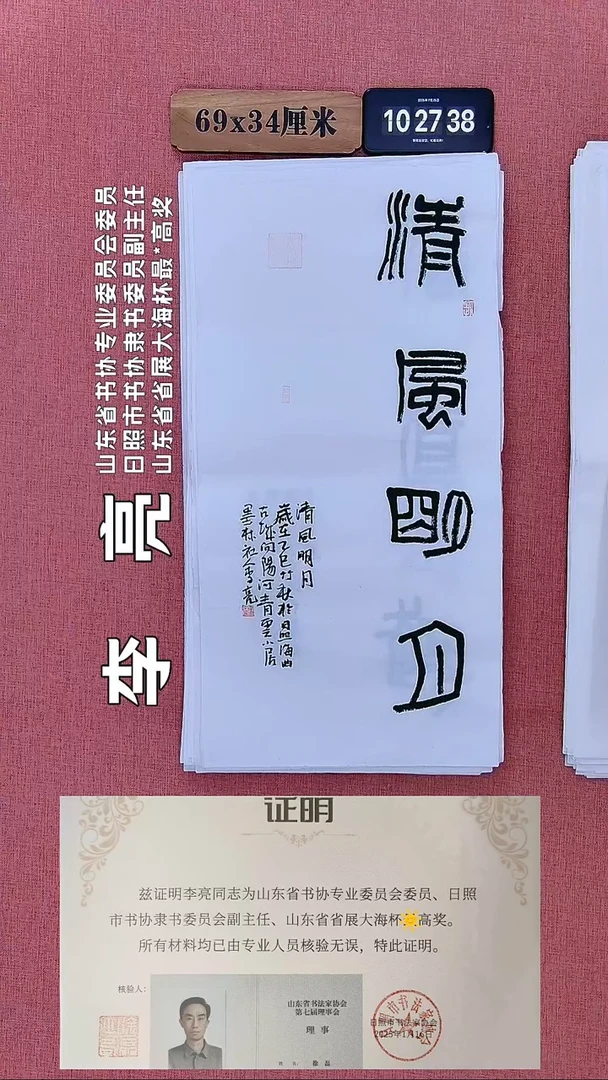 69x34厘米
10 27 38
清風明月
清风明月
歲在乙巳竹秋於日照海曲
墨林社人李亮
山东省书协专业委员会委员
日照市书协隶书委员副主任
山东省省展大海杯最*高奖
李 亮
证明
兹证明李亮同志为山东省书协专业委员会委员、日照
市书协隶书委员会副主任、山东省省展大海杯高奖。
所有材料均已由专业人员核验无误，特此证明。
核验人：
山东省书法家协会
第七届理事会
理 事
姓 名： 徐磊
日照市书法家协会
2025年1月16日